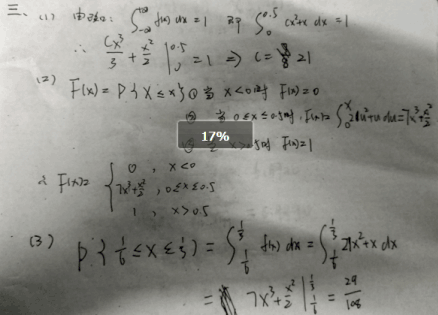 三、(1) 由题知: ∫_{-∞}^{+∞} f(x) dx = 1 即 ∫_0^{0.5} cx²+x dx = 1
∴ cx³/3 + x²/2 |_0^{0.5} = 1 ⇒ c = 21
(2) F(x) = P{X ≤ x} ① 当 x<0时 F(x)=0
② 当 0≤x≤0.5时, F(x)= ∫_0^x 21u²+u du = 7x³+x²/2
17%
x>0.5时 F(x)=1
∴ F(x)= { 0 , x<0
7x³+x²/2 , 0≤x≤0.5
1 , x>0.5
(3) P{1/6 ≤ X ≤ 1/3} = ∫_{1/6}^{1/3} f(x) dx = ∫_{1/6}^{1/3} 21x²+x dx
= 7x³+x²/2 |_{1/6}^{1/3} = 29/108